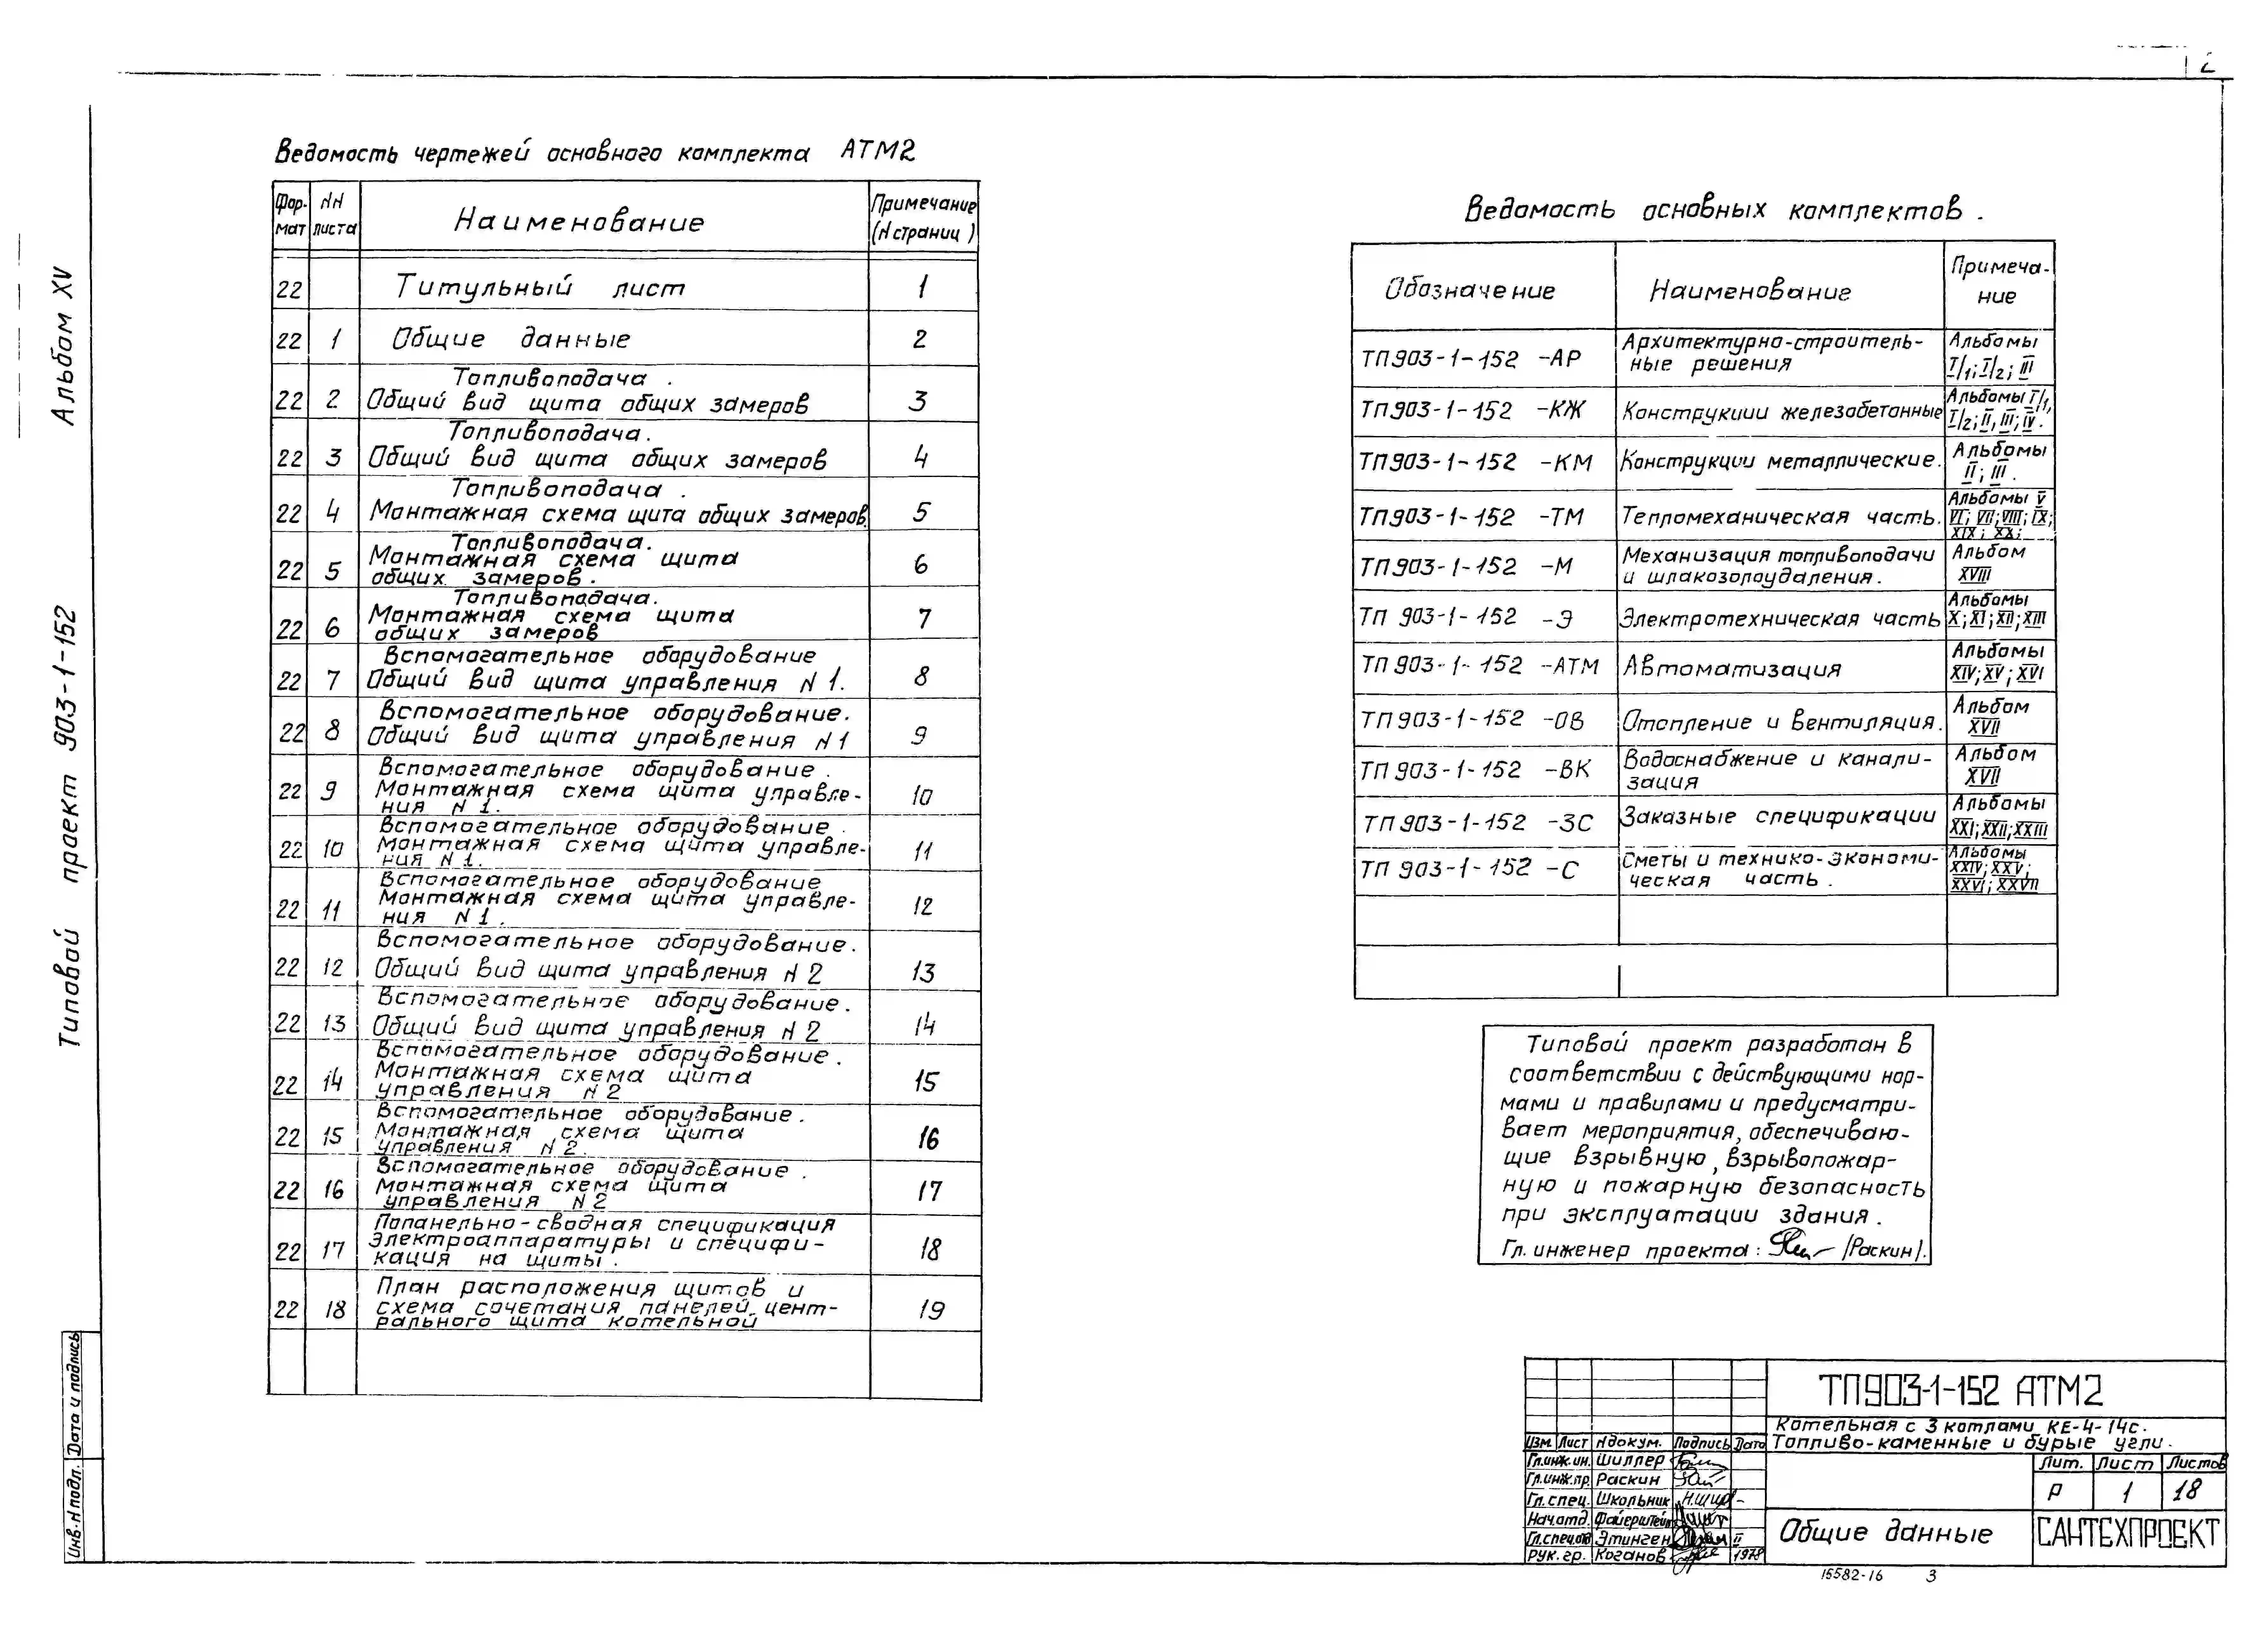 2
Альбом XV
Типовой проект 903-1-152
Инв.N подл. Дата и подпись
Ведомость чертежей основного комплекта АТМ2
Фор-мат NN листа Наименование Примечание (N страниц)
22 Титульный лист 1
22 1 Общие данные 2
Топливоподача.
22 2 Общий вид щита общих замеров 3
Топливоподача.
22 3 Общий вид щита общих замеров 4
Топливоподача.
22 4 Монтажная схема щита общих замеров. 5
Топливоподача.
Монтажная схема щита
22 5 общих замеров. 6
Топливоподача.
Монтажная схема щита
22 6 общих замеров 7
Вспомогательное оборудование
22 7 Общий вид щита управления N 1. 8
Вспомогательное оборудование.
22 8 Общий вид щита управления N 1 9
Вспомогательное оборудование.
22 9 Монтажная схема щита управле- 10
ния N 1.
Вспомогательное оборудование.
22 10 Монтажная схема щита управле- 11
ния N 1.
Вспомогательное оборудование
22 11 Монтажная схема щита управле- 12
ния N 1.
Вспомогательное оборудование.
22 12 Общий вид щита управления N 2 13
Вспомогательное оборудование.
22 13 Общий вид щита управления N 2 14
Вспомогательное оборудование.
22 14 Монтажная схема щита 15
управления N 2
Вспомогательное оборудование.
22 15 Монтажная схема щита 16
управления N 2.
Вспомогательное оборудование.
22 16 Монтажная схема щита 17
управления N 2
Попанельно-сводная спецификация
22 17 электроаппаратуры и специфи- 18
кация на щиты.
План расположения щитов и
22 18 схема сочетания панелей цент- 19
рального щита котельной
Ведомость основных комплектов.
Обозначение Наименование Примеча-
ние
ТП903-1-152 -АР Архитектурно-строитель- Альбомы
ные решения I/1; I/2; III
ТП903-1-152 -КЖ Конструкции железобетонные Альбомы I/1,
I/2; II, III; IV.
ТП903-1-152 -КМ Конструкции металлические. Альбомы
II; III.
ТП903-1-152 -ТМ Тепломеханическая часть. Альбомы V
VI; VII; VIII; IX;
XIX; XX;
ТП903-1-152 -М Механизация топливоподачи Альбом
и шлакозолоудаления. XVIII
ТП 903-1-152 -Э Электротехническая часть Альбомы
X; XI; XII; XIII
ТП 903-1-152 -АТМ Автоматизация Альбомы
XIV; XV; XVI
ТП903-1-152 -ОВ Отопление и вентиляция. Альбом
XVII
ТП 903-1-152 -ВК Водоснабжение и канали- Альбом
зация XVII
ТП903-1-152 -ЗС Заказные спецификации Альбомы
XXI; XXII; XXIII
ТП 903-1-152 -С Сметы и технико-экономи- Альбомы
ческая часть. XXIV; XXV;
XXVI; XXVII
Типовой проект разработан в
соответствии с действующими нор-
мами и правилами и предусматри-
вает мероприятия, обеспечиваю-
щие взрывную, взрывопожар-
ную и пожарную безопасность
при эксплуатации здания.
Гл. инженер проекта: /Раскин/.
ТП903-1-152 АТМ2
Котельная с 3 котлами КЕ-4-14с.
Топливо-каменные и бурые угли.
Изм. Лист N докум. Подпись Дата
Гл.инж.ин. Шиллер
Гл.инж.пр. Раскин
Гл. спец. Школьник
Нач.отд. Файерштейн
Гл.спец.от Этинген II
Рук. гр. Коганов 1978
Лит. Лист Листов
Р 1 18
Общие данные
САНТЕХПРОЕКТ
15582-16 3